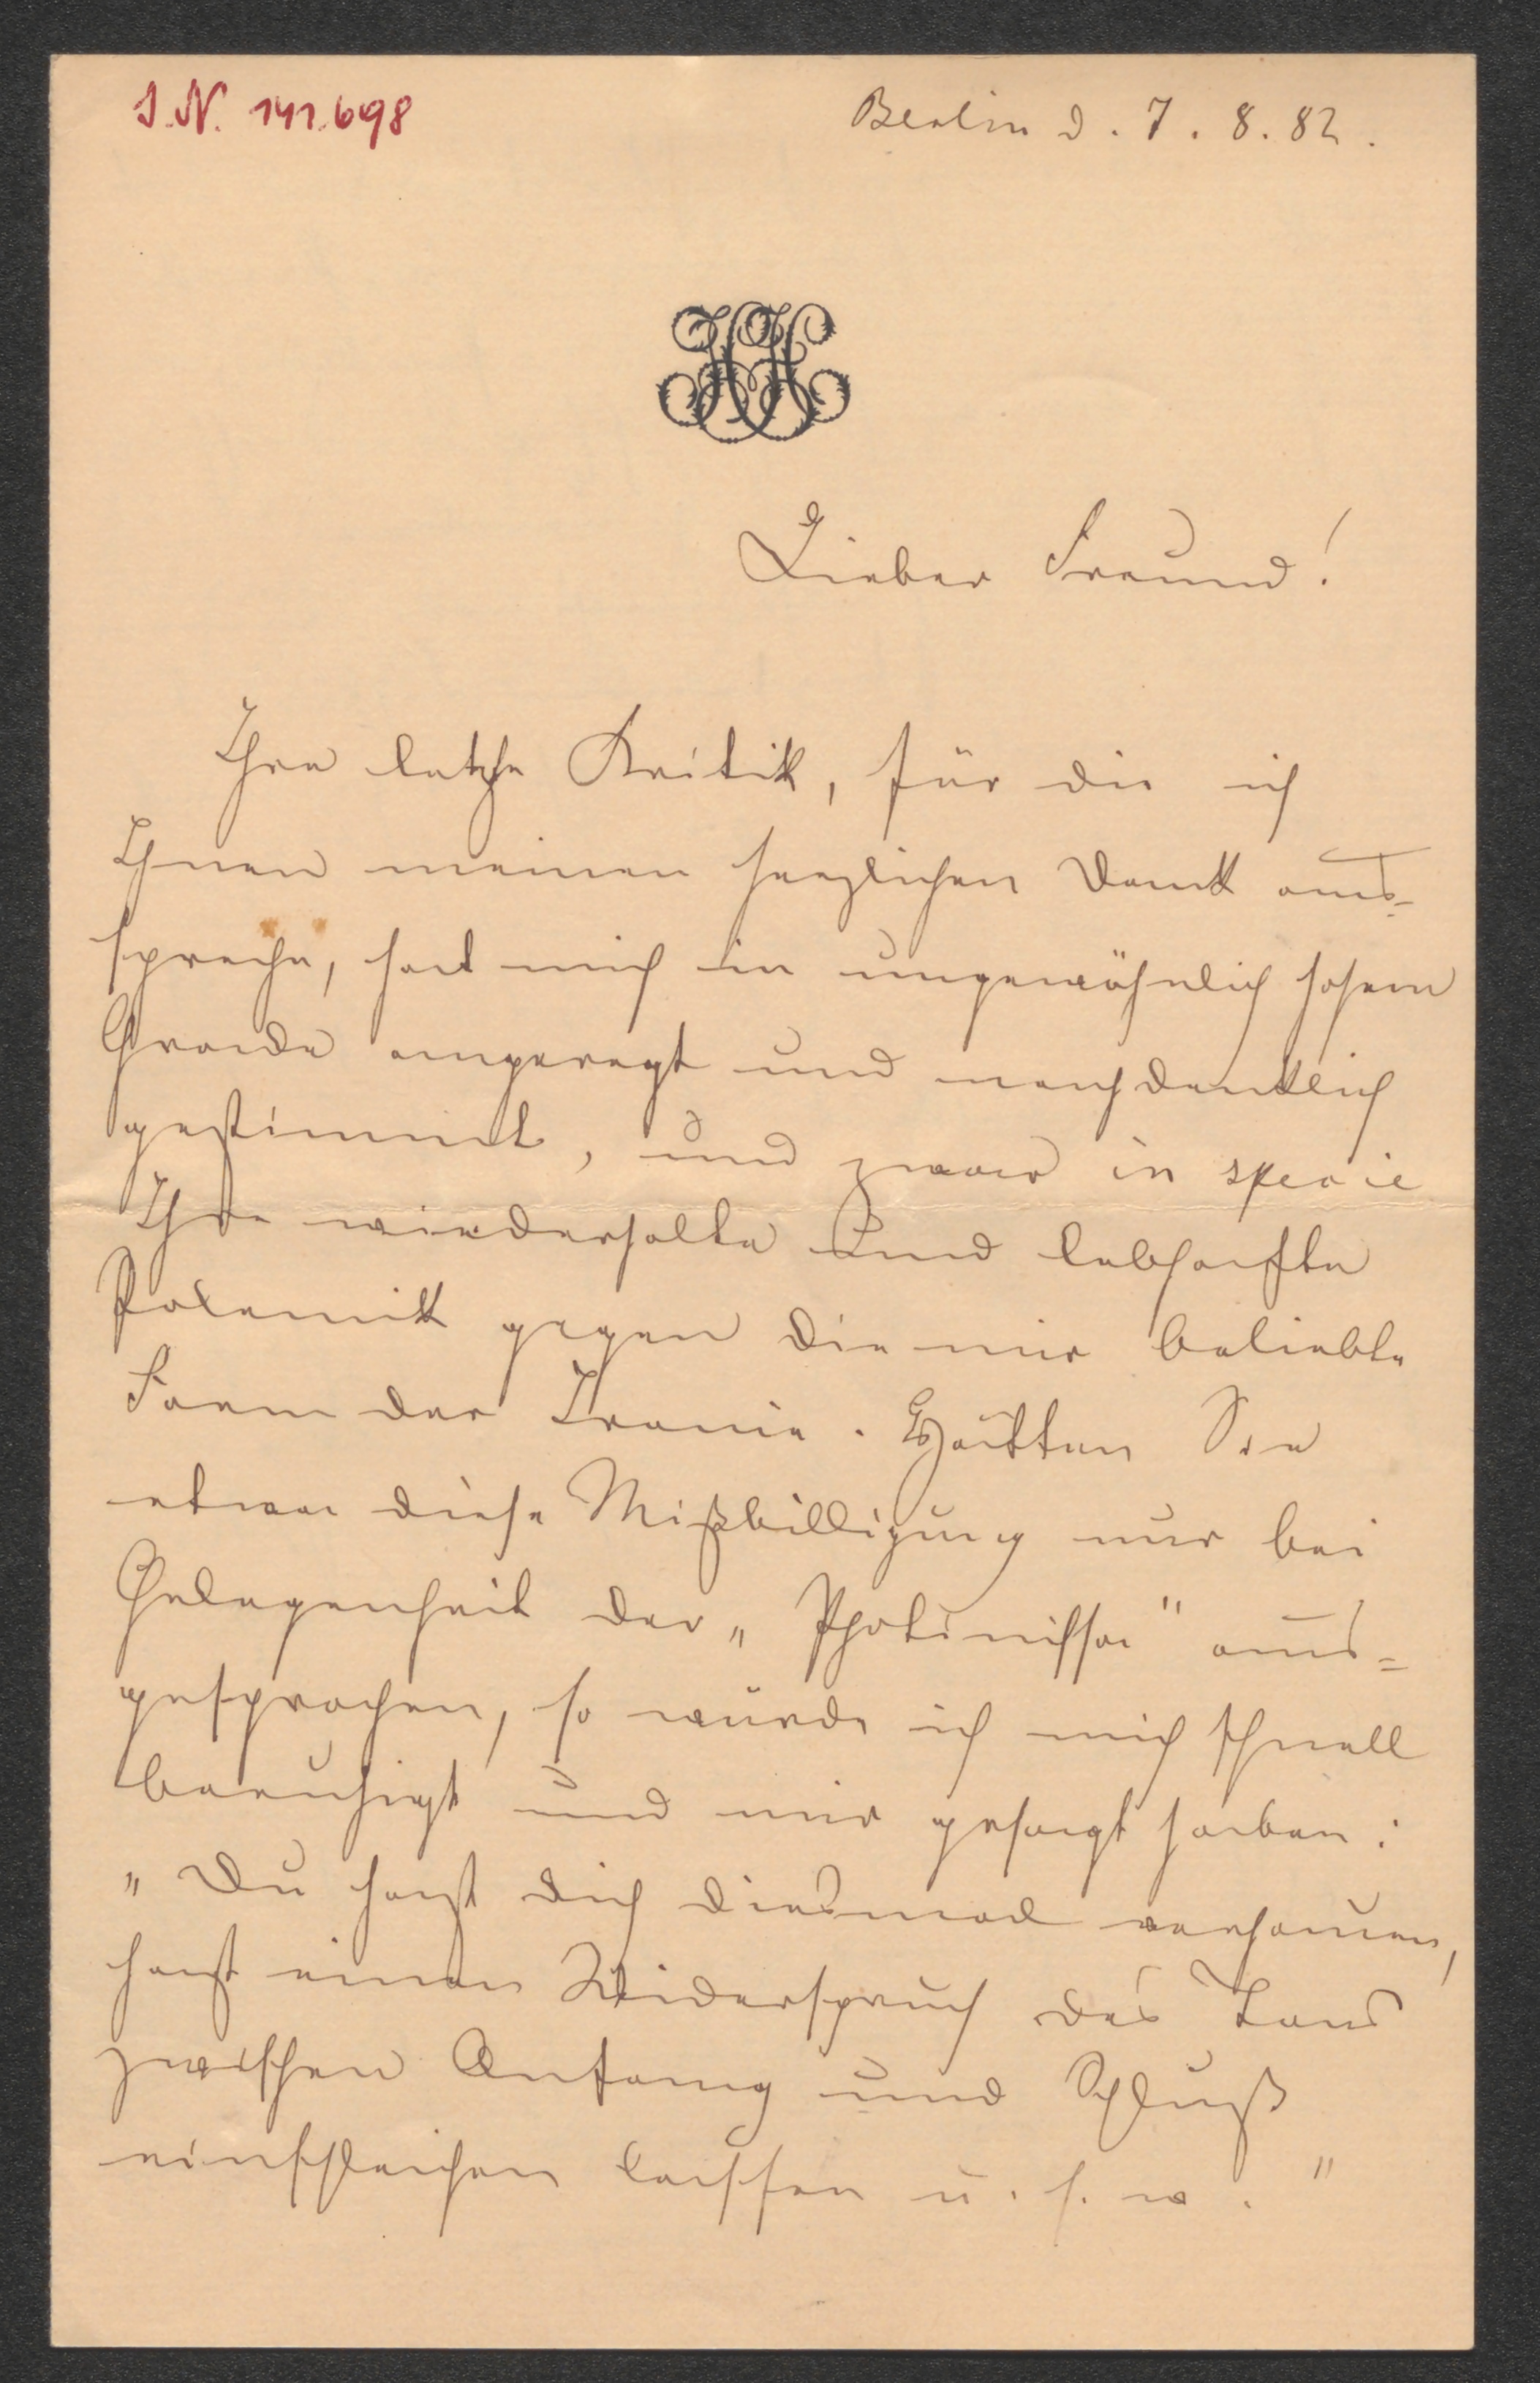 I.N. 141.698
Berlin d. 7. 8. 82.
Lieber Freund!
Ihre letzte Kritik, für die ich
Ihnen meinen herzlichen Dank aus-
spreche, hat mich in ungewöhnlich hohem
Grade angeregt und nachdenklich
gestimmt, und zwar in specie
Ihre wiederholte und lebhafte
Polemik gegen die mir beliebte
Form der Ironie. Hätten Sie
etwa diese Mißbilligung nur bei
Gelegenheit der „Photinissa" aus-
gesprochen, so würde ich mich schnell
beruhigt und mir gesagt haben:
„Du hast dich diesmal verhauen,
hast einen Widerspruch des Tons
zwischen Anfang und Schluß
einschleichen lassen u. s. w."